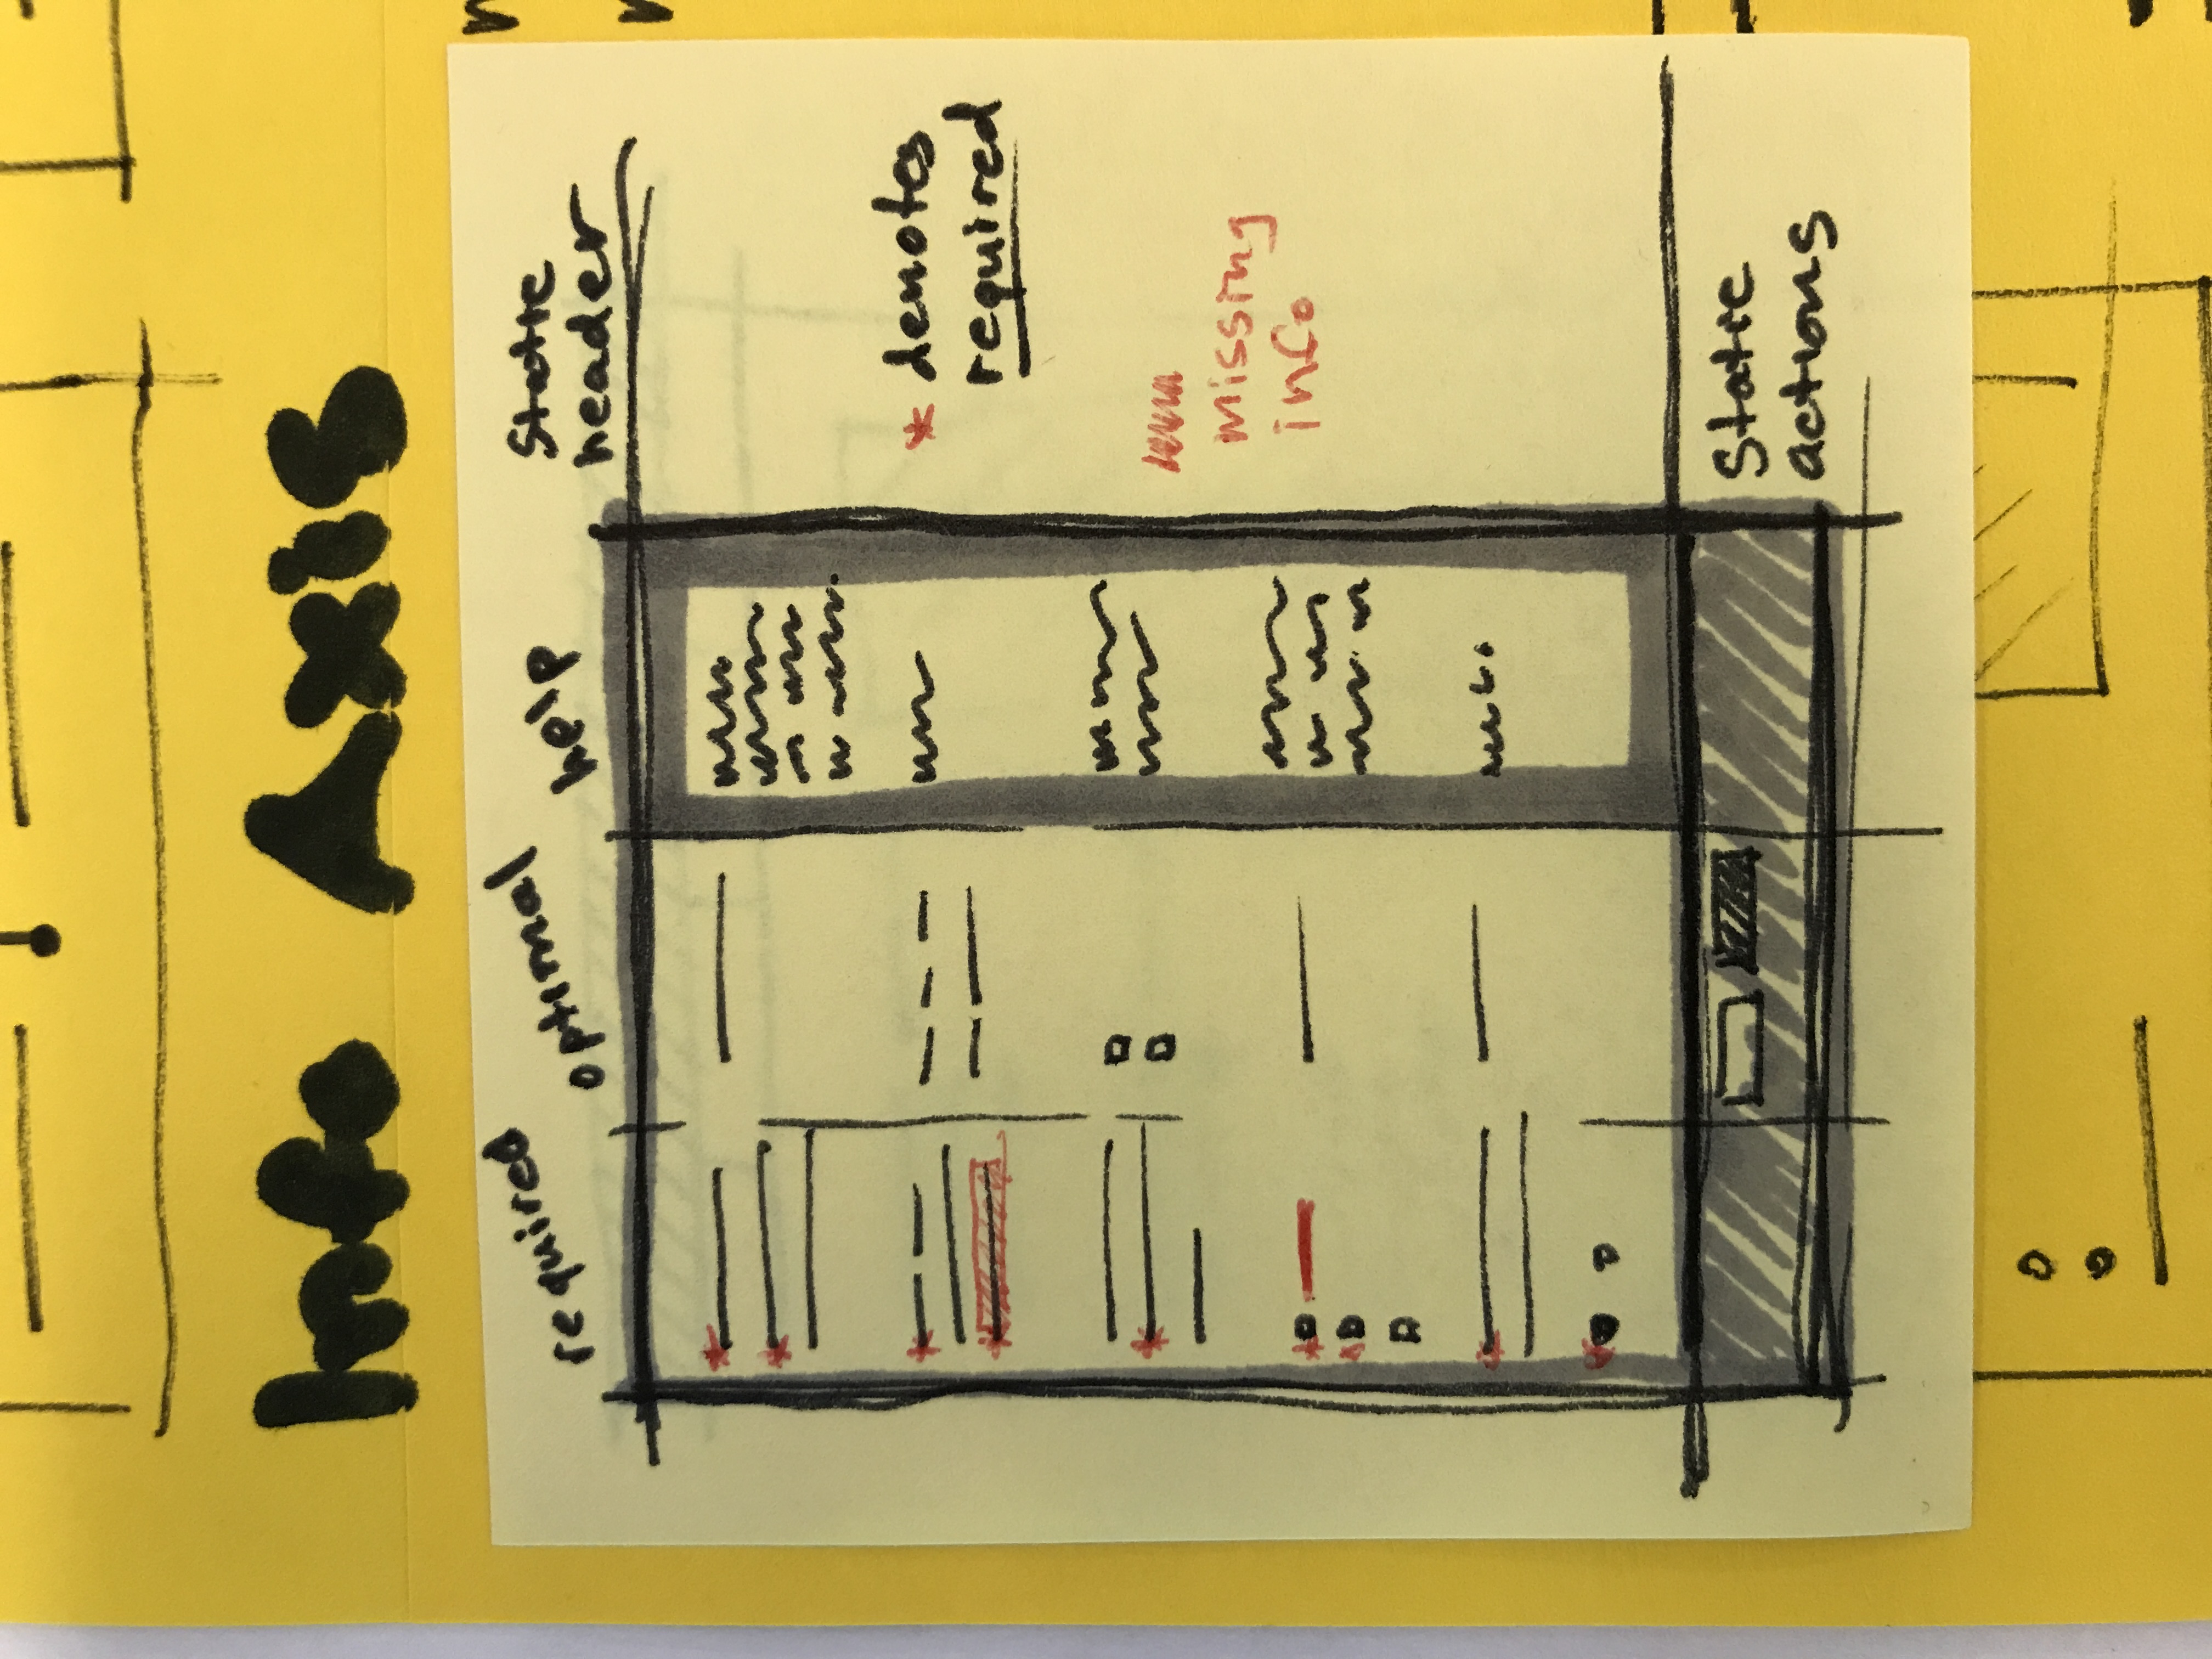 Info Axis
required optional help Static
header
* denotes
required
missing
info
Static
actions